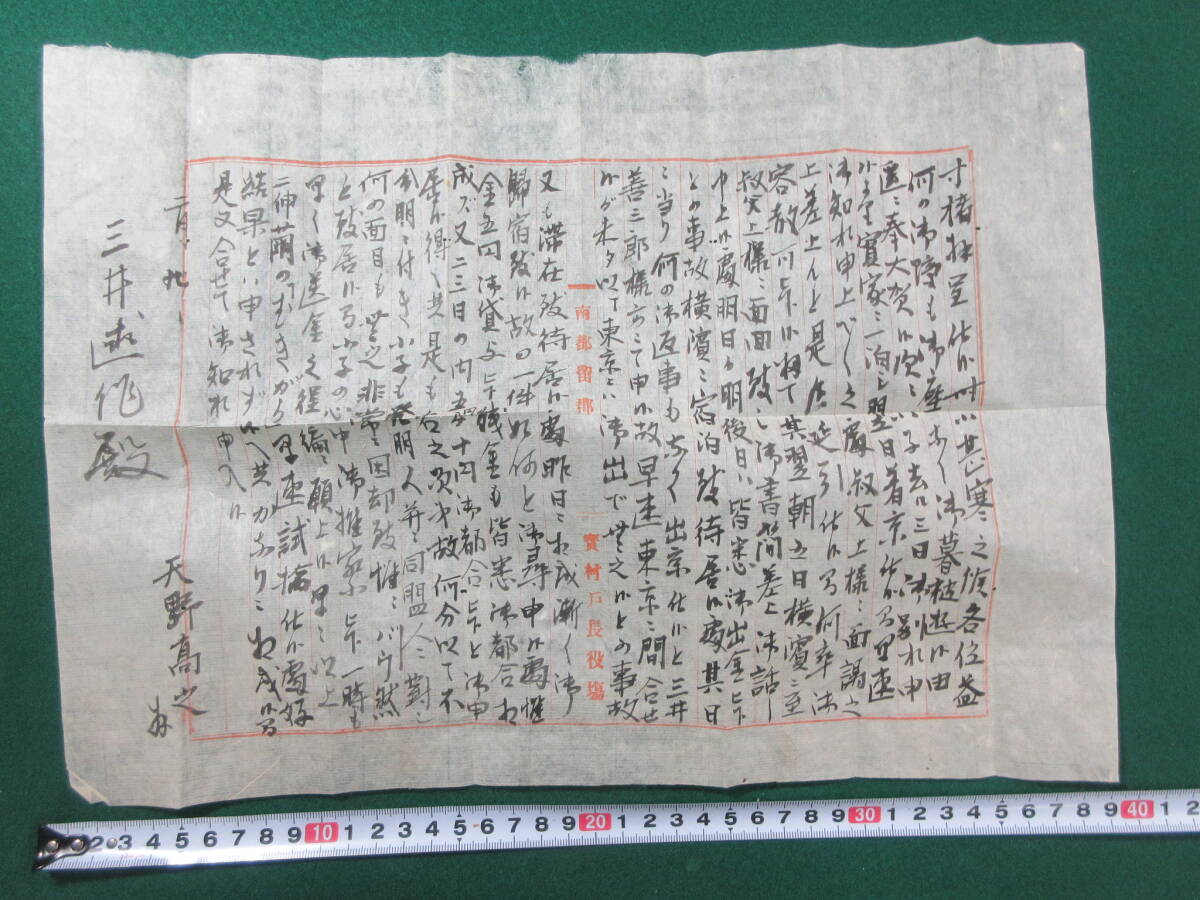 寸楮拝呈仕候時以甚寒之候各位益
何の御障も御座なく御暮被遊候由
遙ニ奉大賀候次ニ小子去ル三日御別れ申
小宝實家ニ一泊シ翌日着京仕候間早速
御知れ申上べく之處叔父上様ニ面謁之
上差上んと是迄延引仕候間何卒御
容赦可被下候扨て其翌朝五日横濱ニ至
叔父上様ニ面回致し御書簡差上御話し
申上候處明日か明後日ハ皆悉御出金被下
との事故横濱ニ宿泊致待居候處其日
ニ当り何の御返事もなく出京仕候と三井
善三郎様方にて申候故早速東京ニ間合せ
候が未タ以て東京ニハ御出で無之候との事故
南都留郡
寳村戸長役塲
又も滞在致待居候處昨日ニ相成漸く御
歸宿致候故の一件如何と御尋申候處惟
金五円御貸与被下残金も皆悉御都合相
成ズ又二三日の内五六十円御都合被下と御申
居候得共是も右之次第故何分以て不
分明ニ付き小子も発明人并ニ同盟人ニ對し
何の面目も無之非常ニ困却致惟ニバウ然
と致居候間小子の心中御推察被下一時も
早く御送金之程編ニ願上候早々以上
二伸繭のむきがら早速試揣仕候處好
結果とハ申されず候へ共かなりニ相成候間
是又合せて御知れ申入候
二月九日
天野高之
三井 作殿
1 2 3 4 5 6 7 8 9 10 1 2 3 4 5 6 7 8 9 20 1 2 3 4 5 6 7 8 9 30 1 2 3 4 5 6 7 8 9 40 1 2